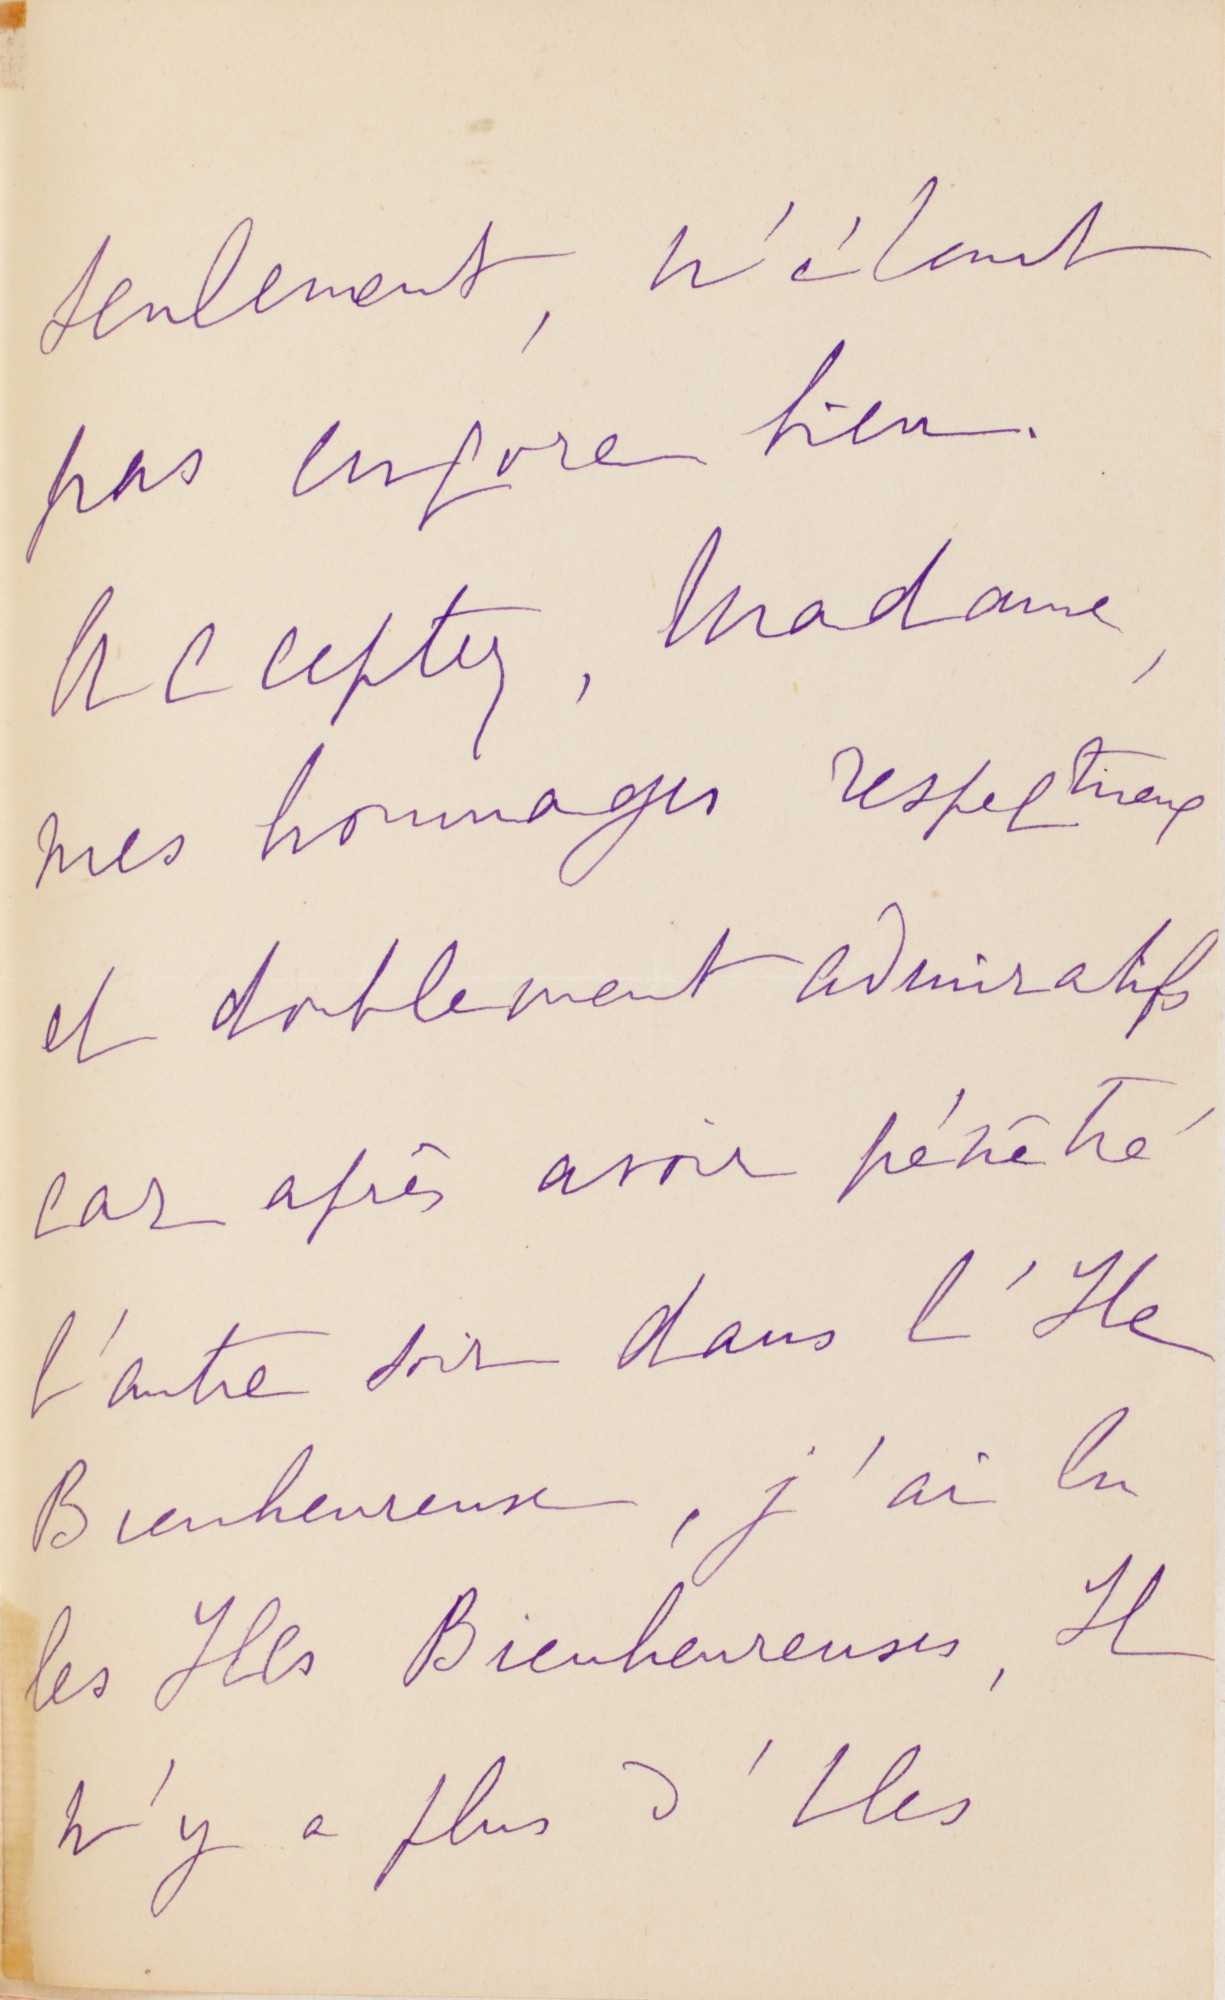 seulement, n'étant
pas encore bien.
Acceptez, Madame,
mes hommages respectueux
et doublement admiratifs
car après avoir pénétré
l'autre soir dans l'Ile
Bienheureuse, j'ai lu
les Iles Bienheureuses, Il
n'y a plus d'Iles